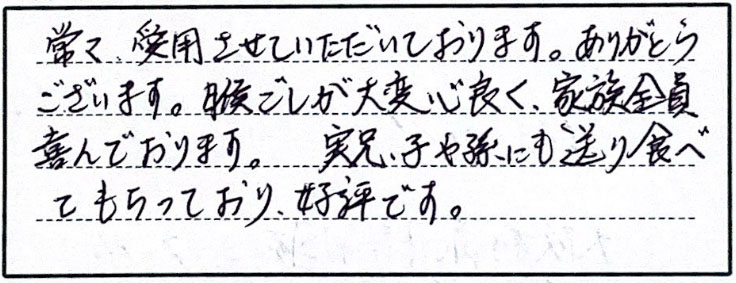 常々、愛用させていただいております。ありがとう
ございます。喉ごしが大変心良く、家族全員
喜んでおります。 実兄、子や孫にも送り食べ
てもらっており、好評です。